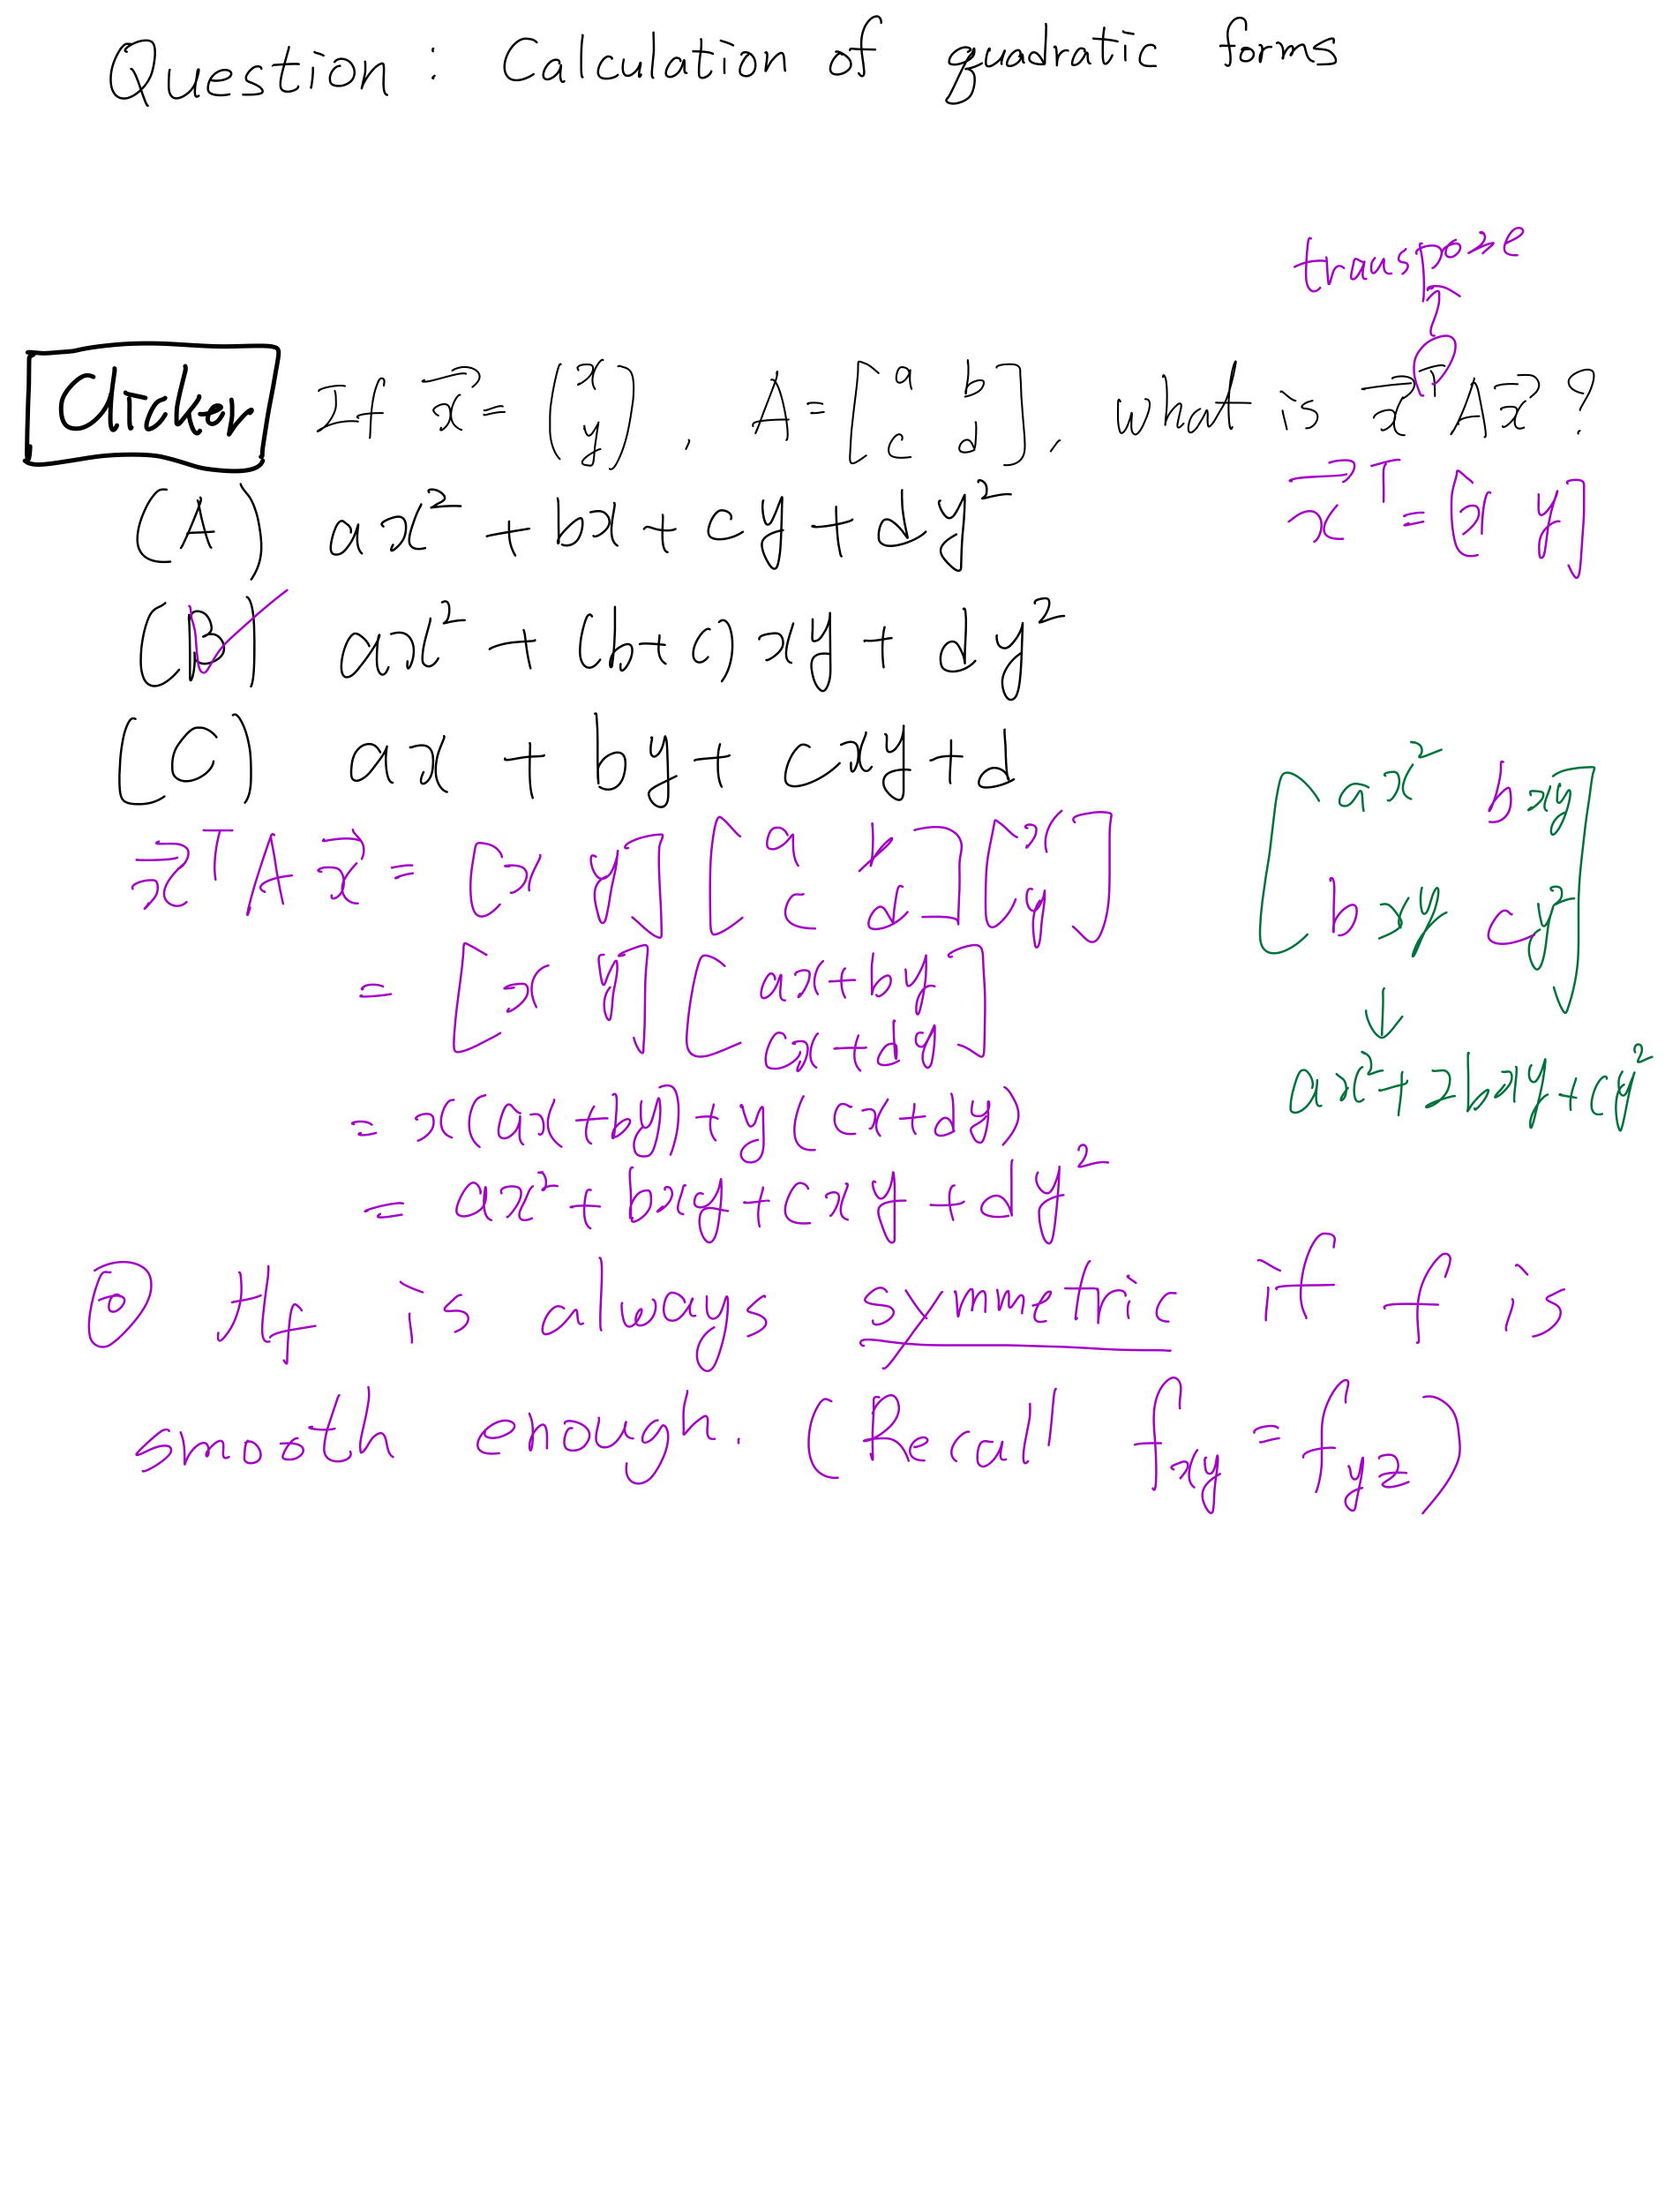 Question : Calculation of quadratic forms
transpose
Clicker If x⃗ = (x y), A = [a b; c d], what is x⃗ᵀAx⃗ ?
x⃗ᵀ = [x y]
(A) ax² + bx + cy + dy²
(B) ax² + (b+c)xy + dy²
(C) ax + by + cxy + d
x⃗ᵀAx⃗ = [x y] [a b; c d] [x; y]
= [x y] [ax+by; cx+dy]
= x(ax+by) + y(cx+dy)
= ax² + bxy + cxy + dy²
[ax² bxy; bxy cy²]
↓
ax² + 2bxy + cy²
⊙ H_f is always symmetric if f is
smooth enough. (Recall f_xy = f_yx)